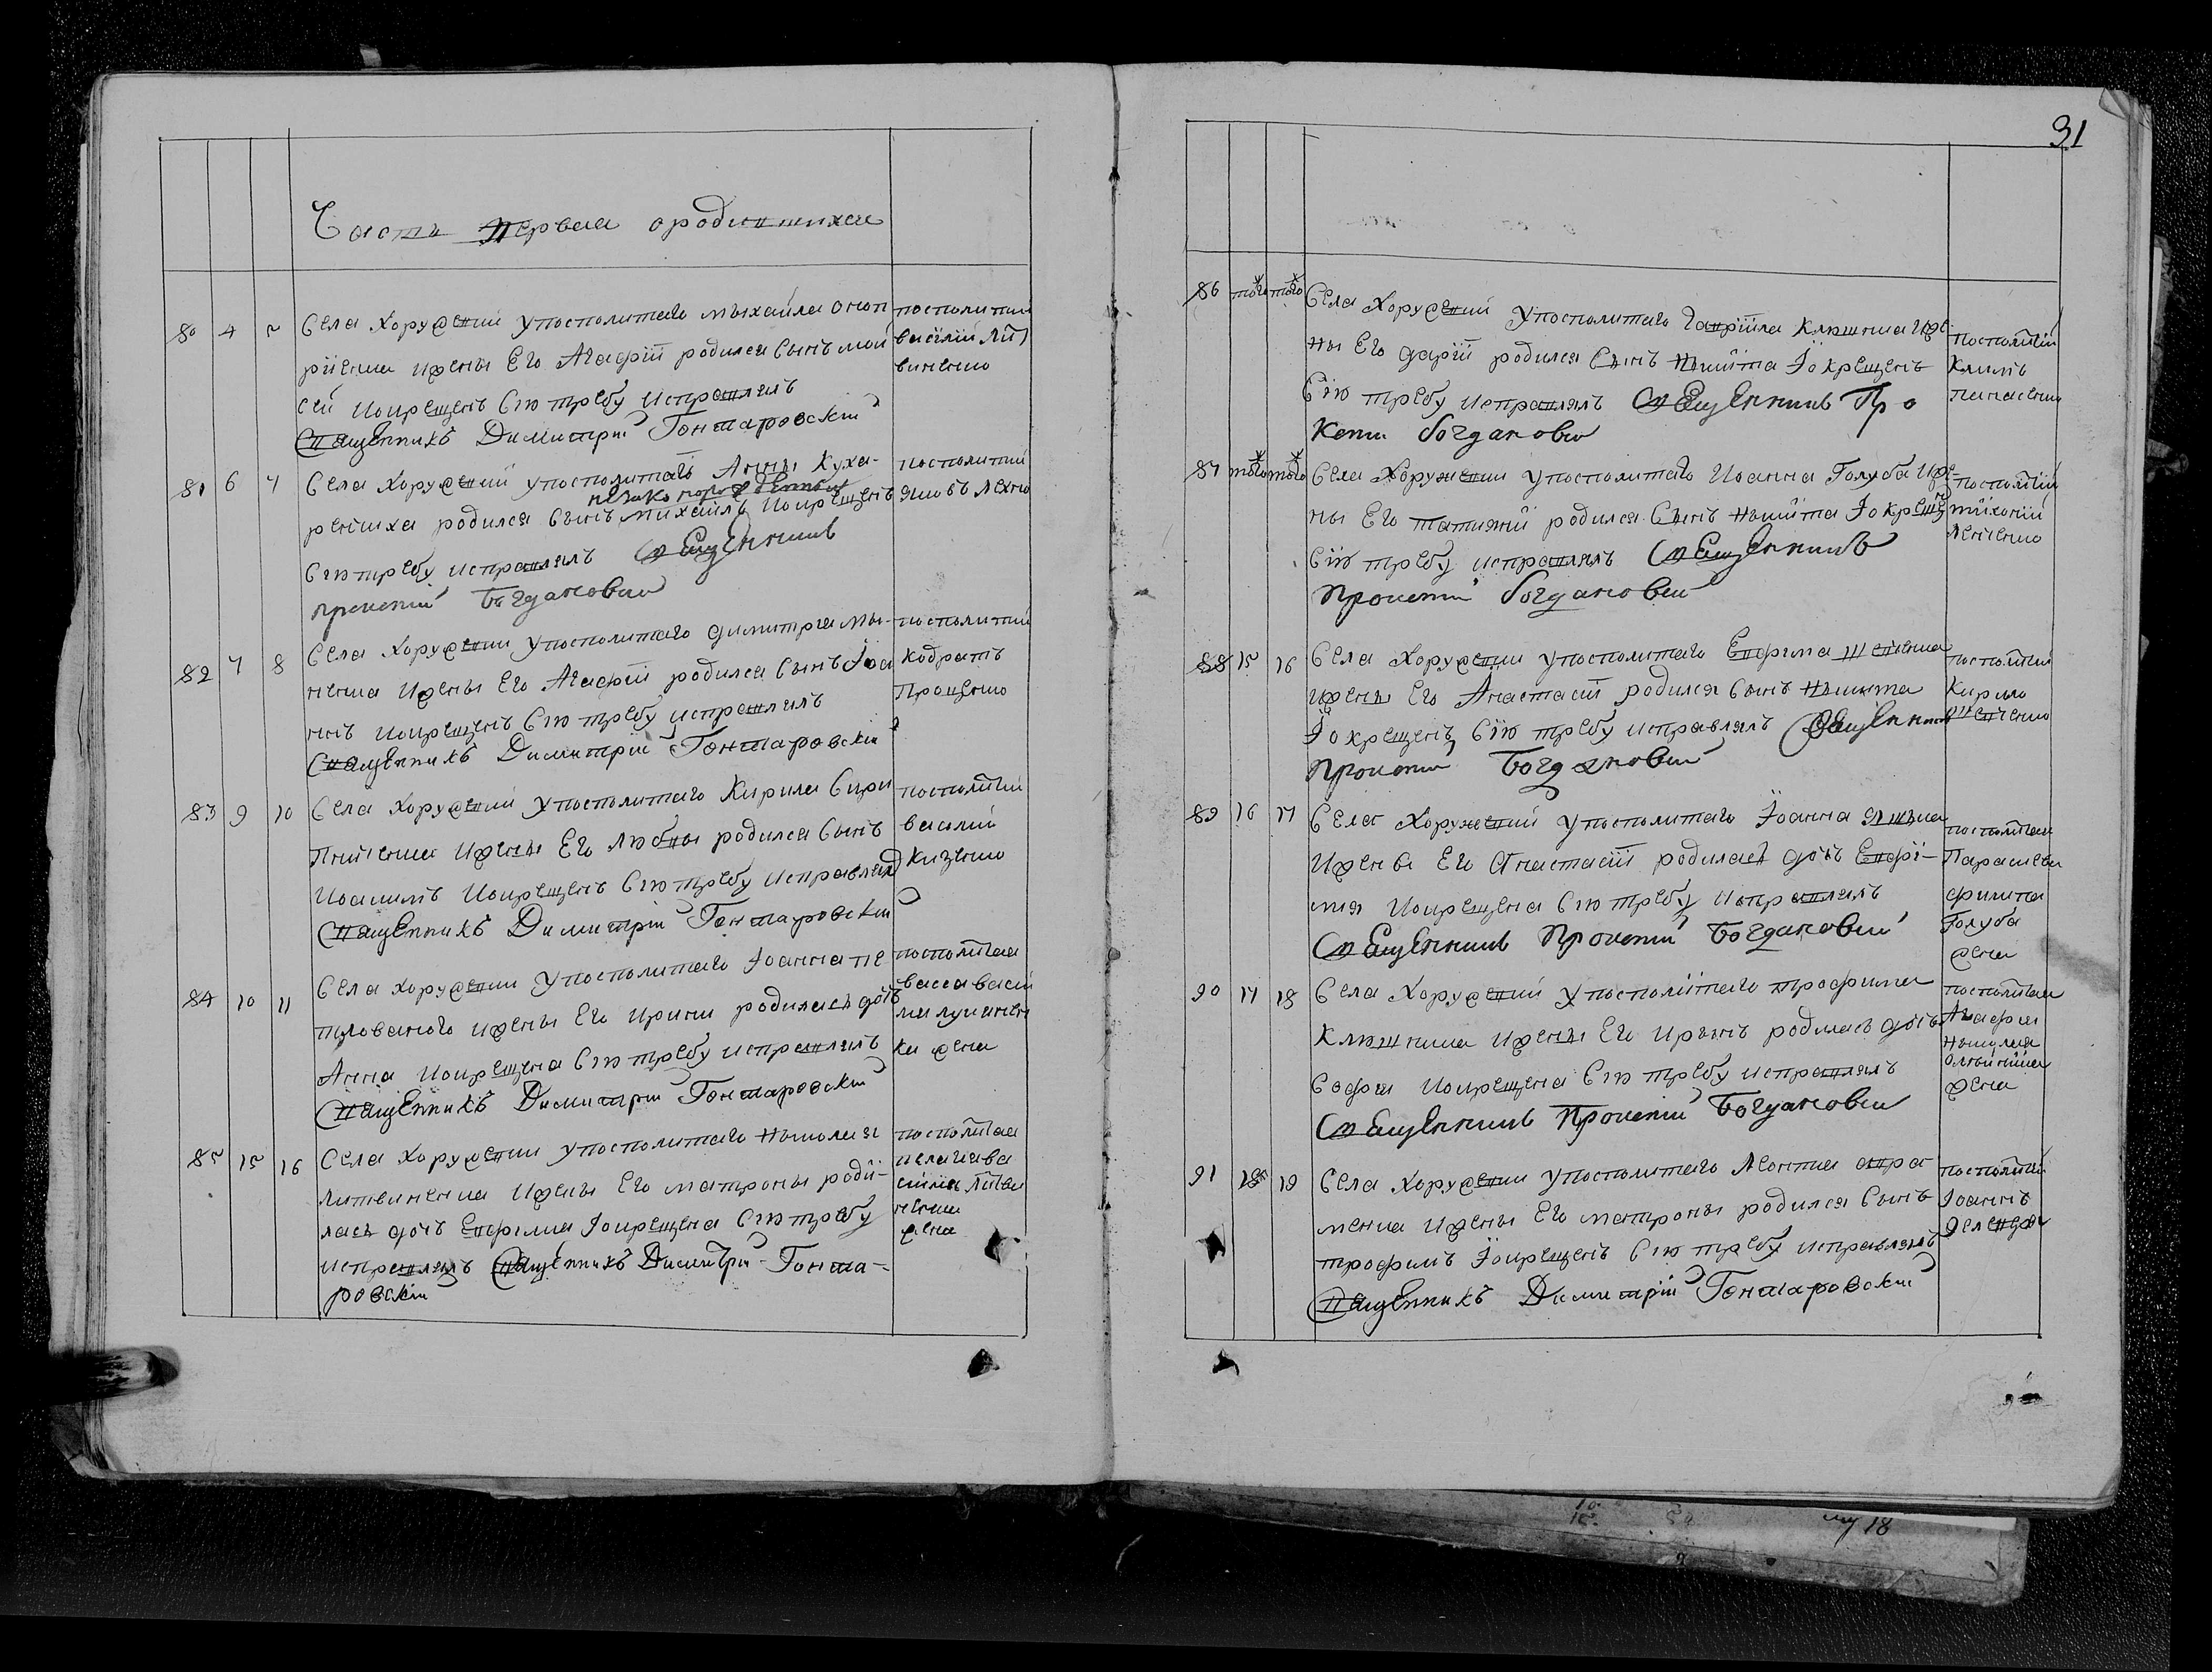 Часть первая ородившихся
80 4 5 Села Хоружевки упосполитаго михайла оноп
риенка ижены Его Агафии родился Сынъ мои
сей Иокрещенъ Сию требу исправлялъ
Священникъ Димитрий Гонтаровский
посполитий
василий Лит
виненко
81 6 7 Села Хоружевки упосполитаго Анны Куха-
незаконорожденный
ренкиха родился Сынъ михаилъ Иокрещенъ
Сию требу исправлялъ Священникъ
прокопий Богдановий
посполитий
яковъ Лехно
82 7 8 Села Хоружевки упосполитаго димитрия мы-
ненка ижены Его Агафии родился Сынъ Іоа
ннъ Иокрещенъ Сию требу исправлялъ
Священникъ Димитрий Гонтаровский
посполитий
Кодратъ
Проценко
83 9 10 Села Хоружевки упосполитаго Кирила Скри
пниченка ижены Его Любвы родился Сынъ
Иоакимъ Иокрещенъ Сию требу исправлялъ
Священникъ Димитрий Гонтаровский
посполитий
василий
Кизенко
84 10 11 Села хоружевки упосполитаго Іоанна пе
ижены Его Ирини родилась дочъ
Анна Иокрещена Сию требу исправлялъ
Священникъ Димитрий Гонтаровский
посполитая
васса васи
ка жена
85 15 16 Села Хоружевки упосполитаго николая
литвиненка ижены Его матроны роди-
лась дочъ Евфимия Іокрещена Сию требу
исправлялъ Священникъ Димитрий Гонта-
ровский
посполитая
пелагия ва
силия Литви
ненка
жена
31
86 того того Села Хоружевки упосполитаго гаврийла Клюшника иже
ны Его дарии родился Сынъ никита Іокрещенъ
Сию требу исправлялъ Священникъ Про
копи богдановий
посполитий
Климъ
панасенко
87 того того Села Хоружевки упосполитаго Иоанна Голуба иже
ны Его татияни родился Сынъ никита Іокрещенъ
Сию требу исправлялъ Священникъ
прокопий богдановий
посполитий
тихоний
88 15 16 Села Хоружевки упосполитаго Евфима Шевченка
ижены Его Анастасии родился Сынъ никита
Іокрещенъ Сию требу исправлялъ Священникъ
прокопий Богдановий
посполитий
Кирило
шевченко
89 16 17 Села Хоружевки упосполитаго Іоанна
Ижены Его Анастасии родиласъ дочъ Евфи-
мия Иокрещена Сию требу исправлялъ
Священникъ прокопий Богдановий
посполитая
Параскева
филипа
Голуба
жена
90 17 18 Села Хоружевки упосполитаго трофима
Клюшника ижены Его Ирины родилась дочъ
София Иокрещена Сию требу исправлялъ
Священникъ прокопий Богдановий
посполитая
Агафия
никулая
жена
91 18 19 Села Хоружевки упосполитаго Леонтия авра
менка ижены Его матроны родился Сынъ
трофимъ Іокрещенъ Сию требу исправлялъ
Священникъ Димитрий Гонтаровский
посполитий
Іоаннъ
му 18